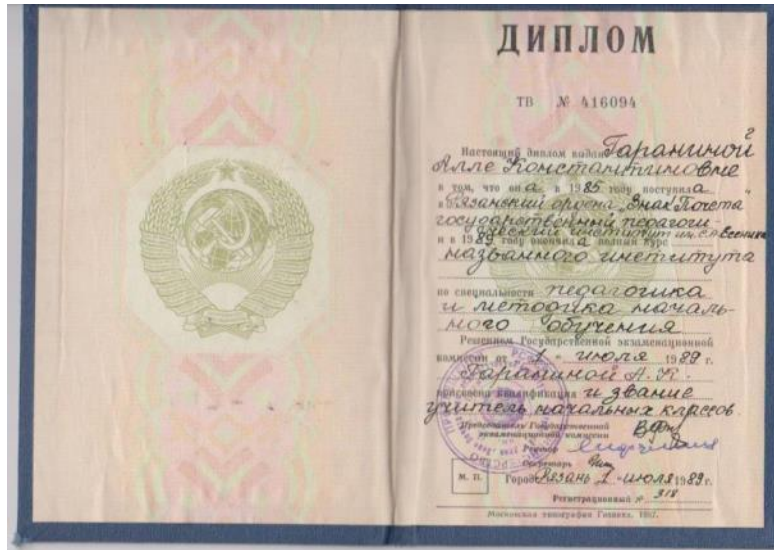 ДИПЛОМ
ТВ № 416094
Настоящий диплом выдан Гараниной
Алле Константиновне
в том, что она в 1985 году поступила
в Рязанский ордена „Знак Почета"
государственный педагоги-
ческий институт им. С.А. Есенина
и в 1989 году окончила полный курс
названного института
по специальности педагогика
и методика началь-
ного обучения
Решением Государственной экзаменационной
комиссии от „1" июля 1989 г.
Гараниной А. К.
присвоена квалификация и звание
учитель начальных классов.
Председатель Государственной
экзаменационной комиссии
Ректор
Секретарь
М. П.
Город Рязань 1 июля 1989 г.
Регистрационный № 318
Московская типография Гознака. 1987.